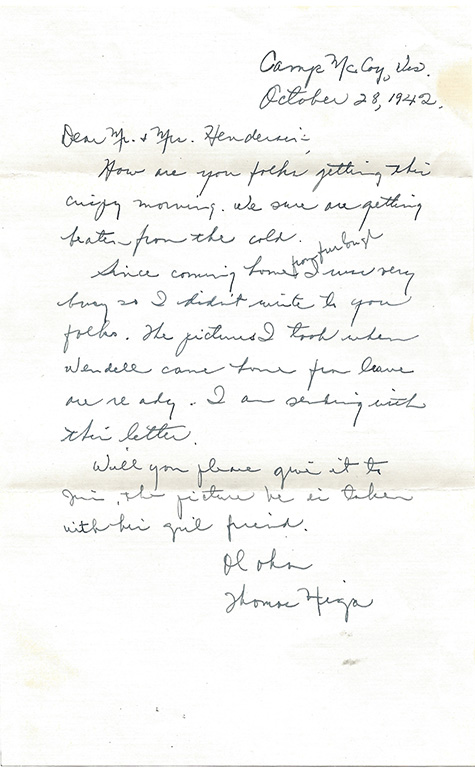 Camp McCoy, Wis.
October 28, 1942.
Dear Mr. & Mrs. Henderson:
How are you folks getting this
crispy morning. We sure are getting
beaten from the cold.
from furlough
Since coming home I was very
busy so I didn't write to you
folks. The pictures I took when
Wendell came home from leave
are ready. I am sending with
this letter.
Will you please give it to
Jim, the picture he is taken
with his girl friend.
Aloha
Thomas Higa